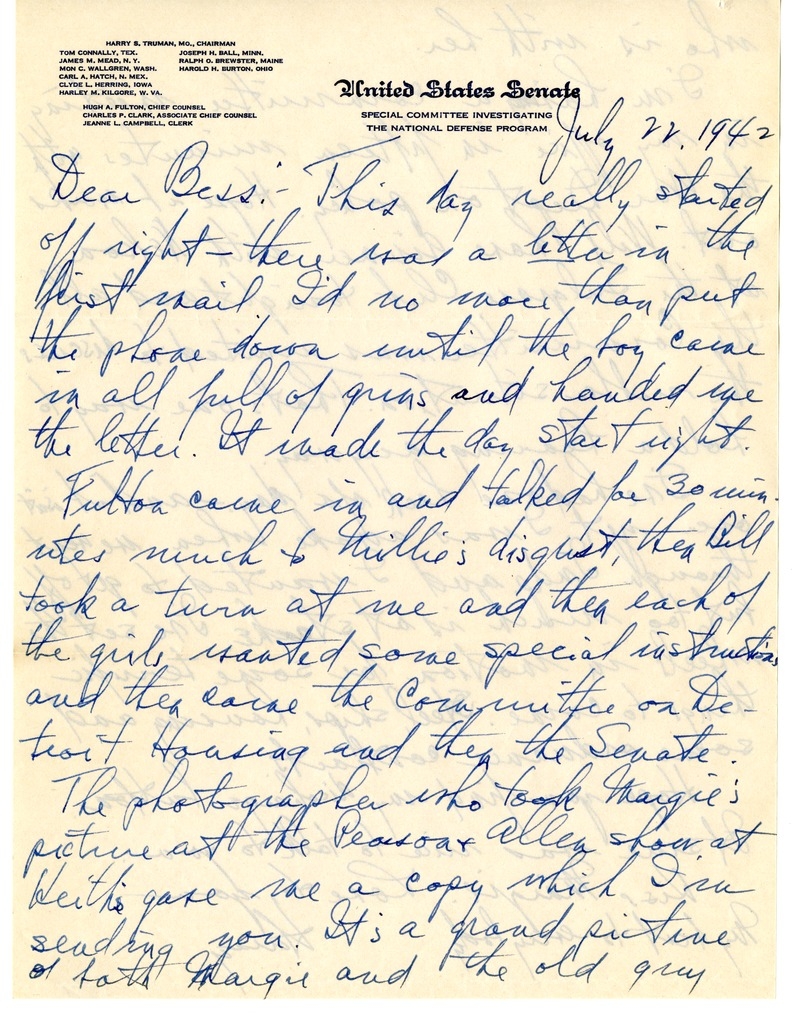 HARRY S. TRUMAN, MO., CHAIRMAN
TOM CONNALLY, TEX. JOSEPH H. BALL, MINN.
JAMES M. MEAD, N. Y. RALPH O. BREWSTER, MAINE
MON C. WALLGREN, WASH. HAROLD H. BURTON, OHIO
CARL A. HATCH, N. MEX.
CLYDE L. HERRING, IOWA
HARLEY M. KILGORE, W. VA.
HUGH A. FULTON, CHIEF COUNSEL
CHARLES P. CLARK, ASSOCIATE CHIEF COUNSEL
JEANNE L. CAMPBELL, CLERK
United States Senate
SPECIAL COMMITTEE INVESTIGATING
THE NATIONAL DEFENSE PROGRAM
July 22, 1942
Dear Bess:- This day really started
off right - there was a letter in the
first mail. I'd no more than put
the phone down until the boy came
in all full of grins and handed me
the letter. It made the day start right.
Fulton came in and talked for 30 min-
utes much to Millie's disgust, then Bill
took a turn at me and then each of
the girls wanted some special instructions
and then came the Committee on De-
troit Housing and then the Senate.
The photographer who took Margie's
picture at the Pearson & Allen show at
Keith's gave me a copy which I'm
sending you. It's a grand picture
of both Margie and the old guy